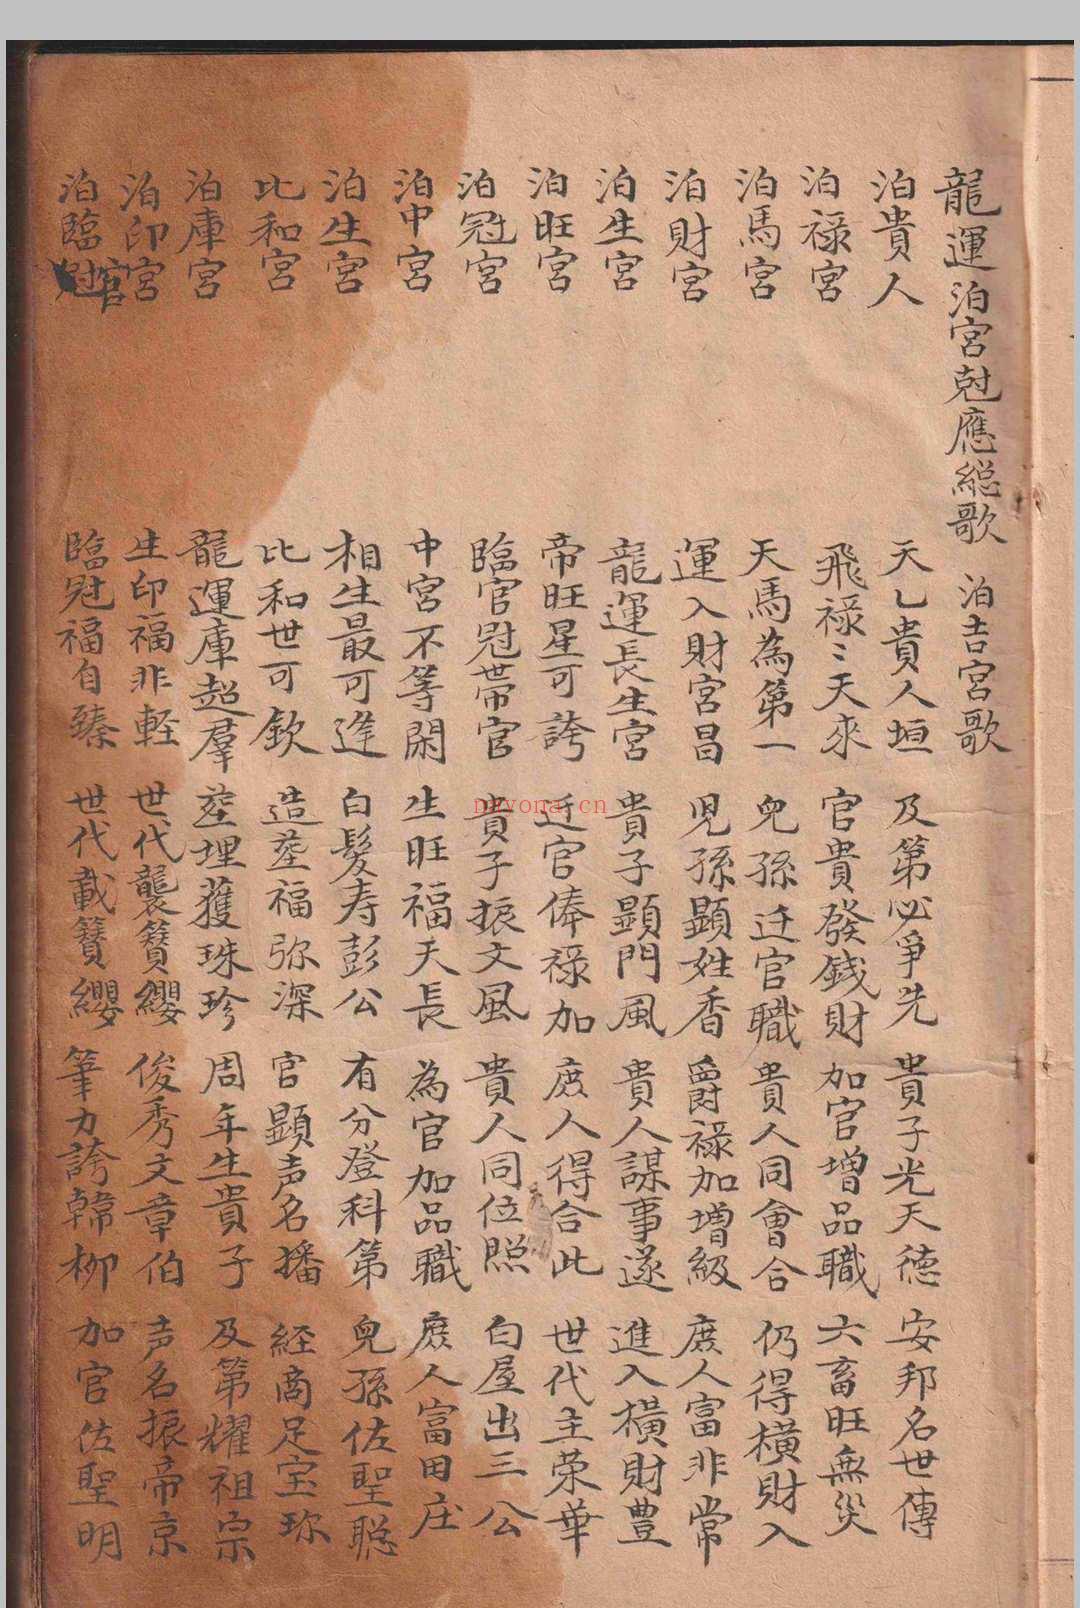 龍運泊宮尅應総歌 泊吉宮歌
泊貴人 天乙貴人垣 及第必爭先 貴子光天德 安邦名世傳
泊禄宮 飛禄〻天來 官貴發錢財 加官增品職 六畜旺無災
泊馬宮 天馬為第一 兒孫迁官職 貴人同會合 仍得橫財入
泊財宮 運入財宮昌 児孫顕姓香 爵禄加增級 庶人富非常
泊生宮 龍運長生宮 貴子顕門風 貴人謀事遂 進入橫財豊
泊旺宮 帝旺星可誇 迁官俸禄加 庶人得合此 世代主荣華
泊冠宮 臨官冠帶官 貴子振文風 貴人同位照 白屋出三公
泊中宮 中宮不等閑 生旺福天長 為官加品職 庶人富田庄
泊生宮 相生最可逢 白髮寿彭公 有分登科第 兒孫佐聖聡
比和宮 比和世可欽 造塟福弥深 官顕声名播 経商足宝珎
泊庫宮 龍運庫超羣 塟埋獲珠珍 周年生貴子 及第耀祖宗
泊印宮 生印福非軽 世代襲簪纓 俊秀文章伯 声名振帝京
泊臨冠宮 臨冠福自臻 世代載簪纓 筆力誇韓柳 加官佐聖明
nayona.cn